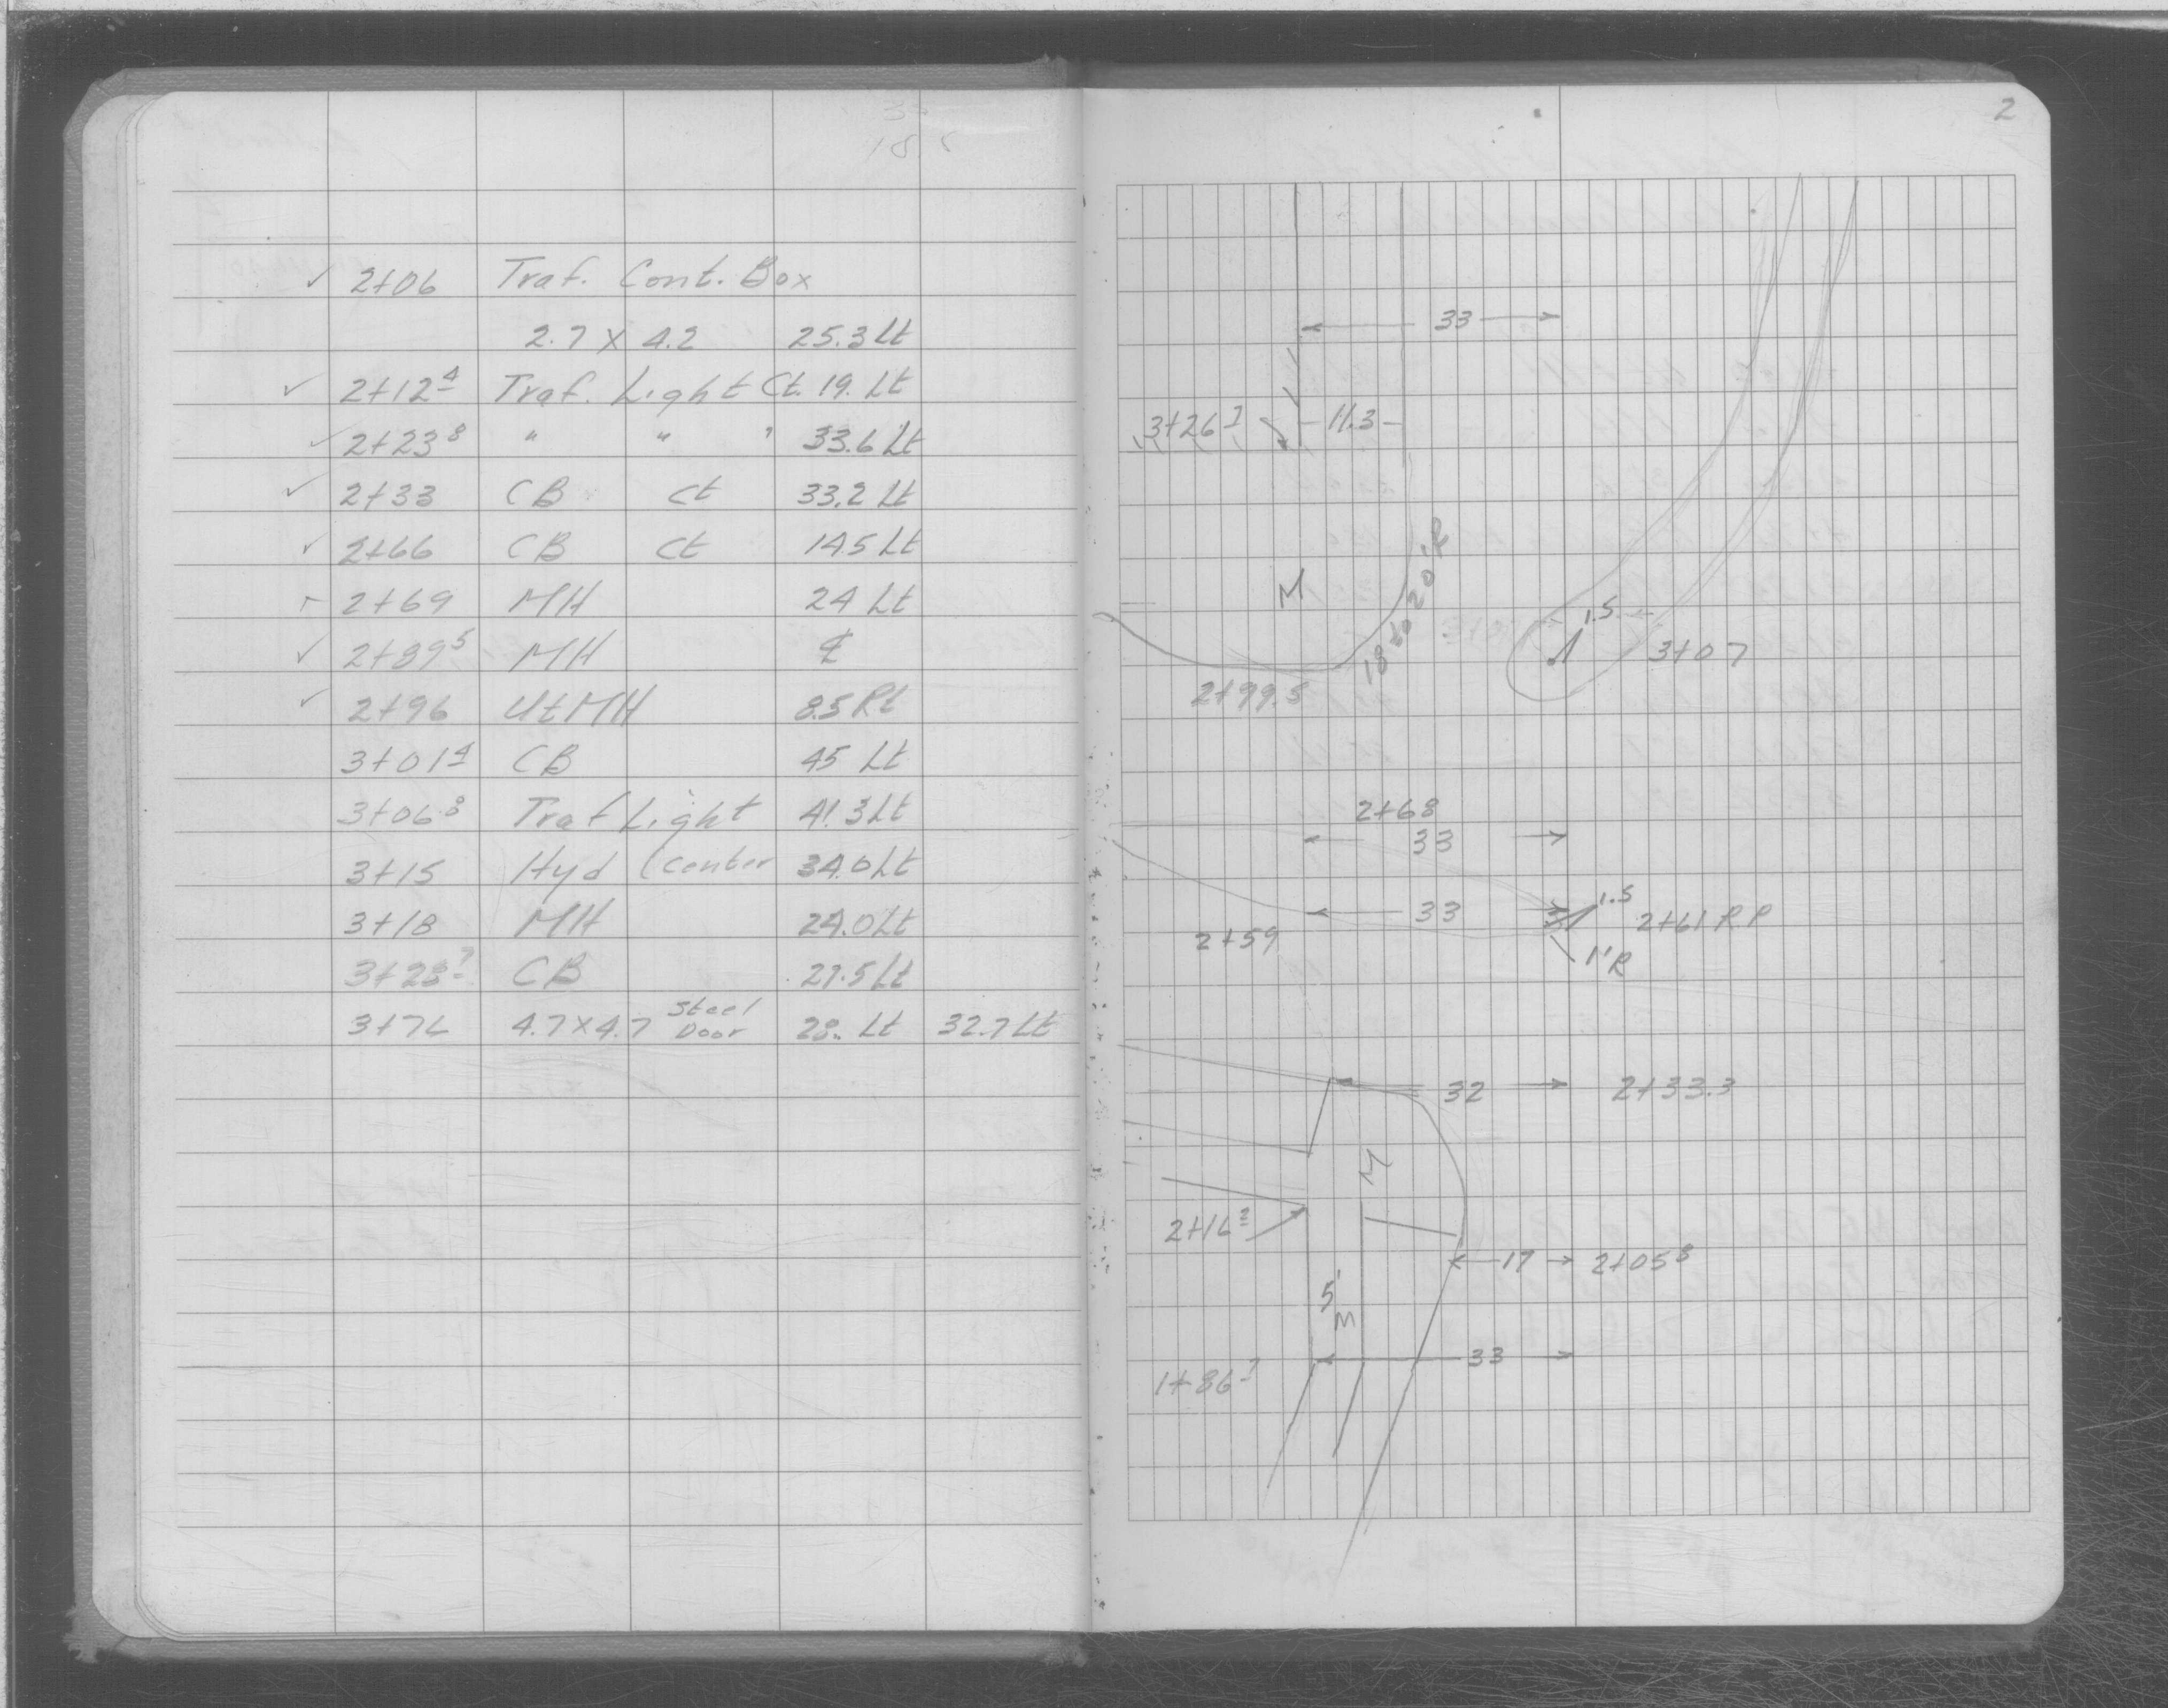 ✓ 2+06 Traf. Cont. Box
2.7 X 4.2 25.3 Lt
✓ 2+12⁴ Traf. Light Ct. 19. Lt
✓ 2+23⁸ " " " 33.6 Lt
✓ 2+33 CB Ct 33.2 Lt
✓ 2+66 CB Ct 14.5 Lt
2+69 MH 24 Lt
✓ 2+89⁵ MH ℄
✓ 2+96 Ut MH 8.5 Rt
3+01⁴ CB 45 Lt
3+06⁸ Traf Light 41.3 Lt
3+15 Hyd (Center 34.0 Lt
3+18 MH 24.0 Lt
3+28⁷ CB 27.5 Lt
3+76 4.7 X 4.7 Steel Door 28. Lt 32.7 Lt
2
33
3+26⁷ 11.3
M
18 to 20'R
1.5
3+07
2+99.5
2+68
33
33
1.5
2+61 RP
2+59
1'R
32 2+33.3
M
2+16³
17 2+05⁸
5'
M
33
1+86⁷